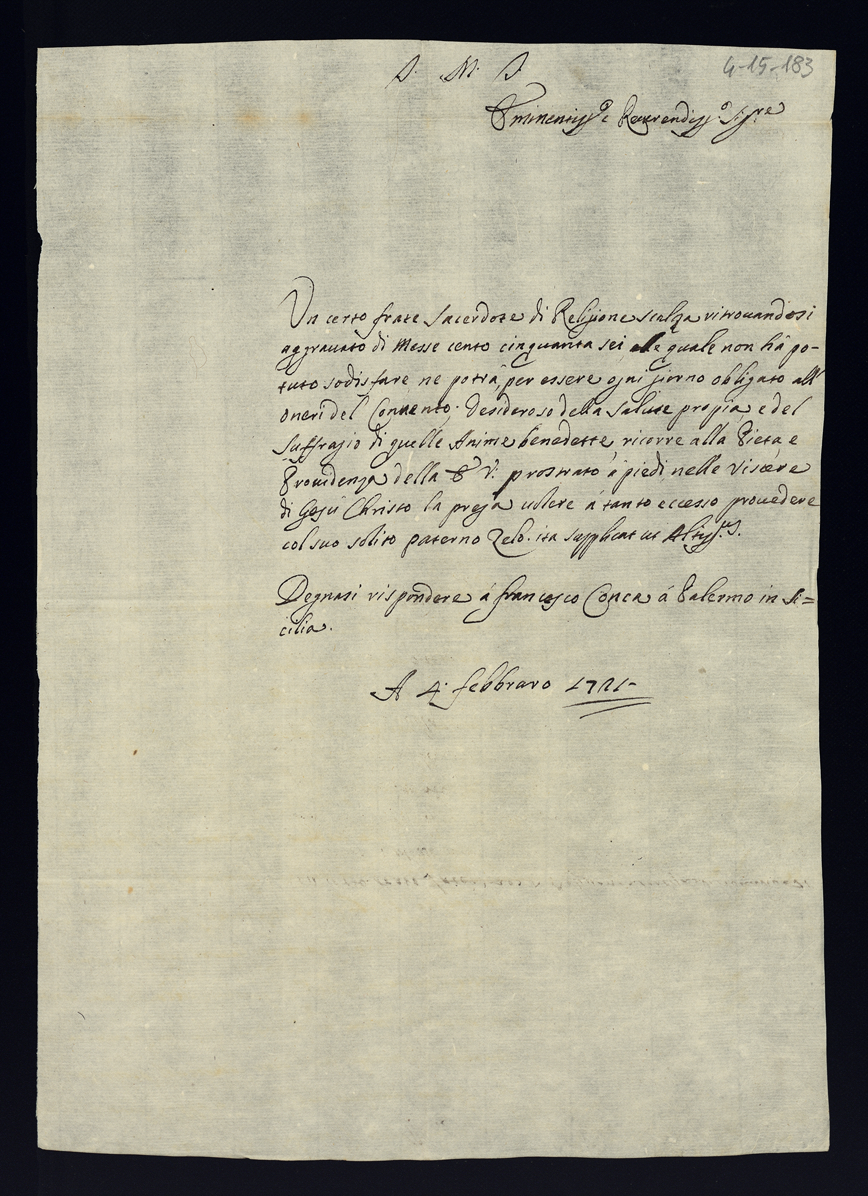 J. M. J.
4-15-183
Eminentiss.º e Reverendiss.º Sig.re
Un certo frate Sacerdote di Religione scalza ritrovandosi
aggravato di Messe cento cinquanta sei alle quale non há po-
tuto sodisfare ne potrá, per essere ogni jorno obligato all'
oneri del Convento; desideroso della salute propia e del
suffragio di quelle Anime benedette ricorre alla Pieta e
Providenza della E. V. prostrato á piedi, nelle viscere
di Gesú Christo la prega volere á tanto eccesso provedere
col suo solito paterno zelo. ita supplicat ut Altiss.us.
Degnasi rispondere á francesco Conca á Palermo in Si=
cilia.
A 4. febbraro 1721